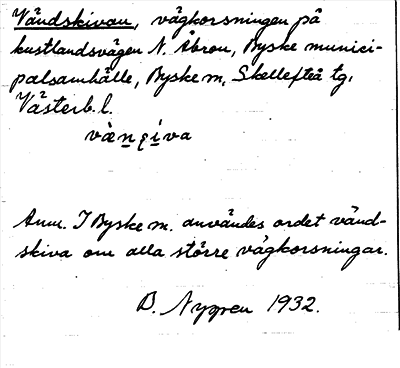 Vändskivan, vägkorsningen på
kustlandsvägen N. Åbron, Byske munici-
palsamhälle, Byske m, Skellefteå tg,
Västerb. l.
vän̠ɕi̠va
Anm. I Byske m. användes ordet vänd-
skiva om alla större vägkorsningar.
B. Nygren 1932.